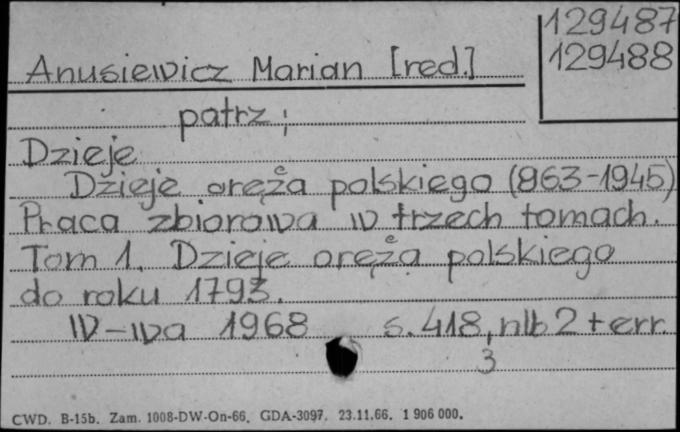 129487
129488
Anusiewicz Marian [red.]
patrz;
Dzieje
Dzieje oręża polskiego (963-1945)
Praca zbiorowa w trzech tomach.
Tom 1. Dzieje oręża polskiego
do roku 1793.
W-wa 1968 s. 418, nlb 2 + err.
3
CWD. B-15b. Zam. 1008-DW-On-66. GDA-3097. 23.11.66. 1 906 000.